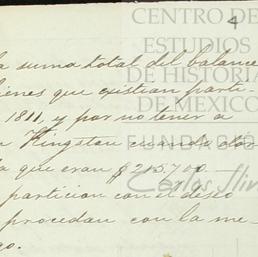 4
CENTRO DE
ESTUDIOS
DE HISTORIA
DE MEXICO
FUNDACIÓN
Carlos Slim
la suma total del balance
bienes que existian parti-
1811, y por no tener a
Kingston cuando
la que eran $215,700
particion con el deseo
procedan con la me-
go.